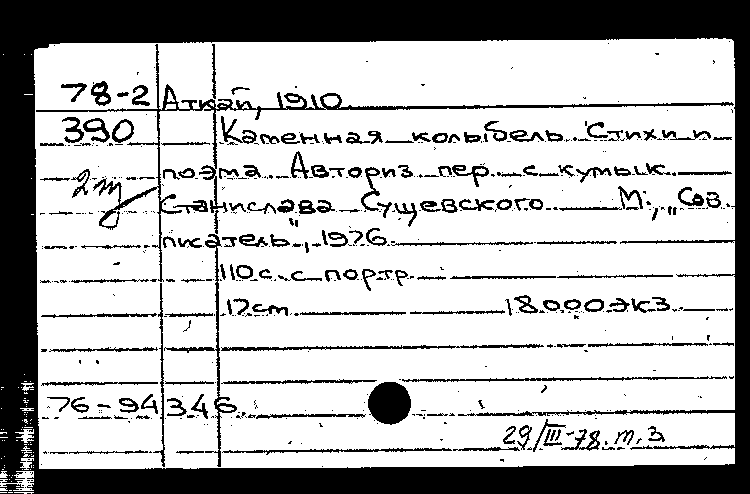 78-2 Аткай, 1910
390 Каменная колыбель Стихи и
поэма Авториз пер. с кумык
Станислава Сущевского М., „Сов.
писатель", 1976.
110 с. с портр.
17 см 18.000 экз.
76-94346.
29/III-78. т. 3.